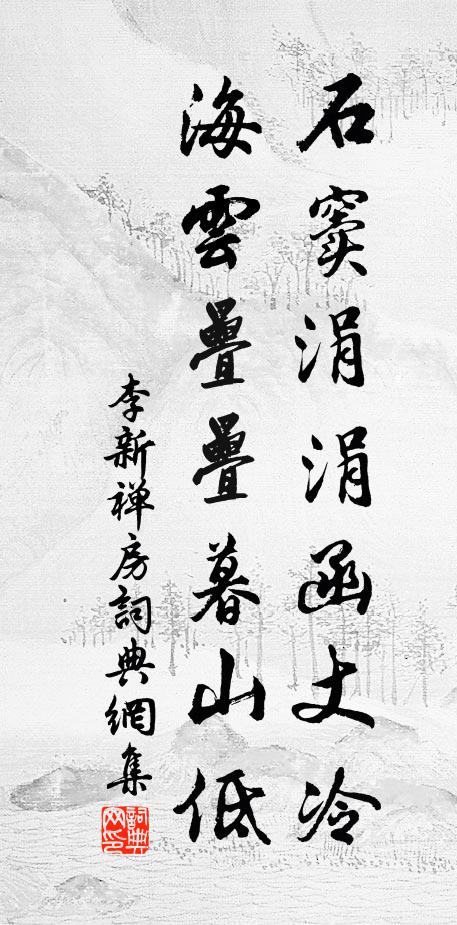 石竇涓涓函丈冷
海雲疊疊暮山低
李新禅房詞典網集
詞典網印